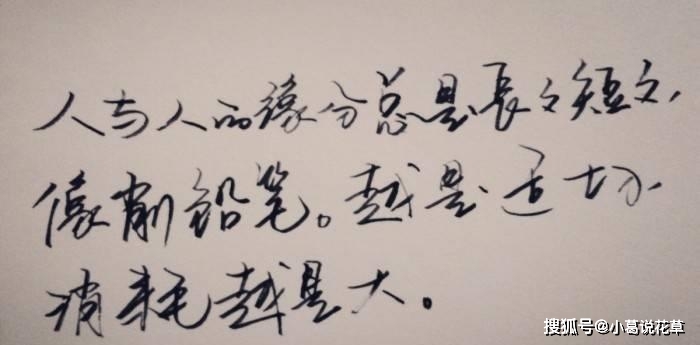 人与人的缘分总是長々短々,
像削铅笔。越是迫切,
消耗越是大。
搜狐号@小葛说花草